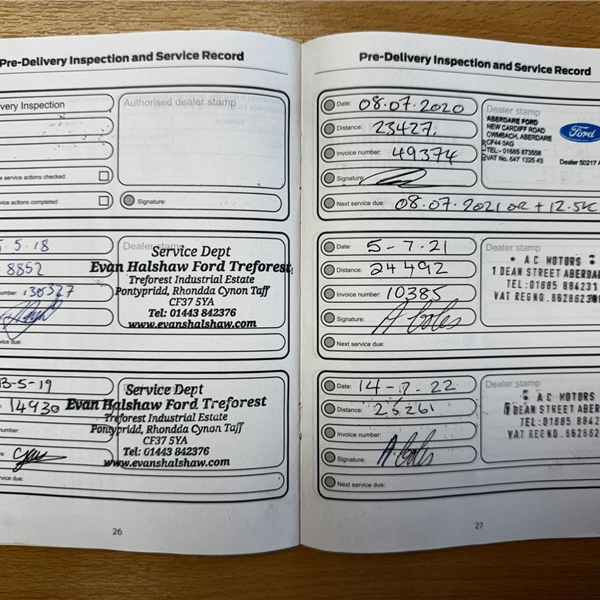 Pre-Delivery Inspection and Service Record
very Inspection
Authorised dealer stamp
e service actions checked:
ce actions completed:
Signature:
5-5.18
8852
number: 136327
vice due:
Dealer stamp
Service Dept
Evan Halshaw Ford Treforest
Treforest Industrial Estate
Pontypridd, Rhondda Cynon Taff
CF37 5YA
Tel: 01443 842376
www.evanshalshaw.com
3-5-19
14930
number:
e:
vice due:
Service Dept
Evan Halshaw Ford Treforest
Treforest Industrial Estate
Pontypridd, Rhondda Cynon Taff
CF37 5YA
Tel: 01443 842376
www.evanshalshaw.com
26
Pre-Delivery Inspection and Service Record
Date: 08.07.2020
Distance: 23427.
Invoice number: 49374
Signature:
Next service due: 08.07.2021 OR + 12.5K
Dealer stamp
ABERDARE FORD
NEW CARDIFF ROAD
CWMBACH, ABERDARE
CF44 0AG
TEL:- 01685 873558
VAT No. 647 1325 43
Ford
Dealer 50217 A
Date: 5-7-21
Distance: 24492
Invoice number: 10385
Signature: A Coles
Next service due:
Dealer stamp
A C MOTORS
1 DEAN STREET ABERDA
TEL:01685 884231
VAT REG NO.
Date: 14-7-22
Distance: 25261
Invoice number:
Signature: A Coles
Next service due:
Dealer stamp
A C MOTORS
DEAN STREET ABER
TEL:01685 8842
VAT REG NO.
27